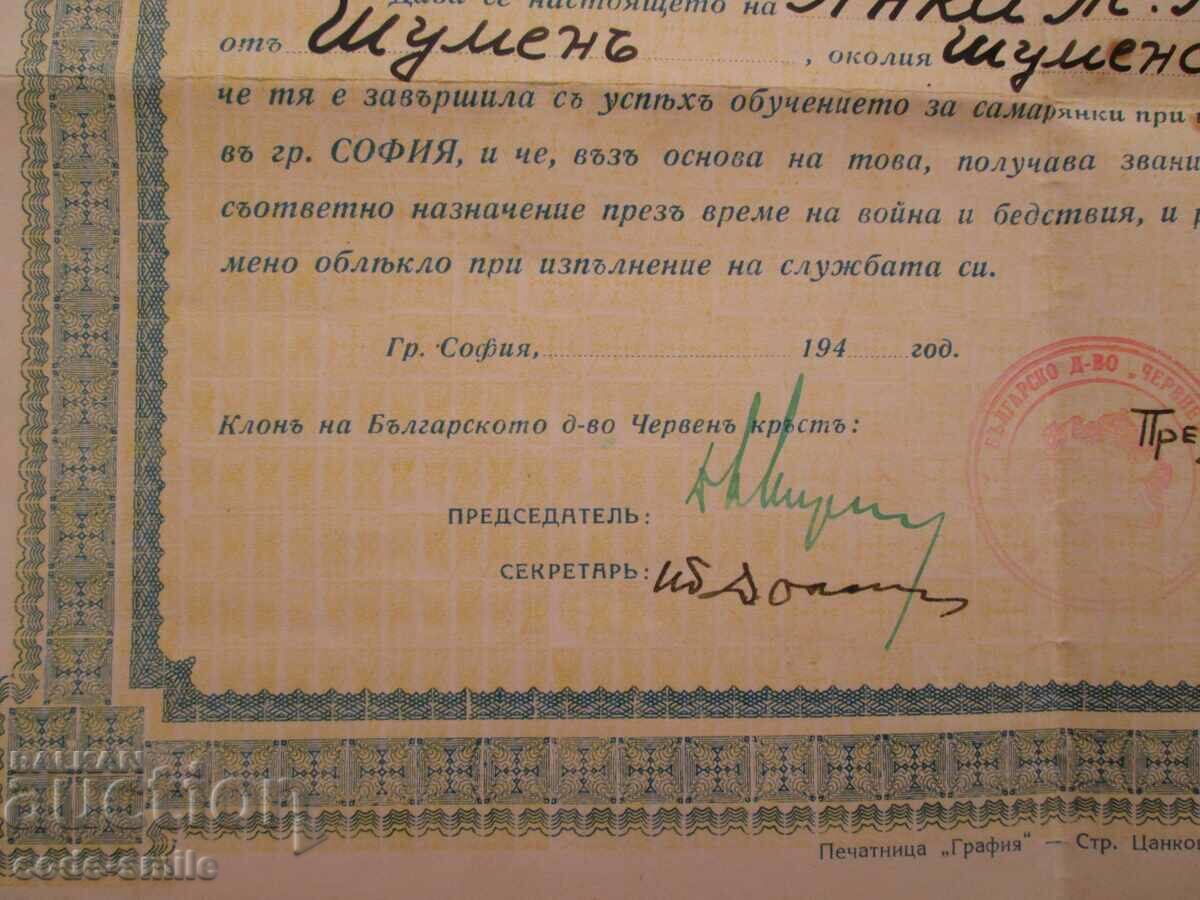 Дава се настоящето на Янка М.
отъ Шуменъ, околия Шуменс
че тя е завършила съ успѣхъ обучението за самарянки при
въ гр. СОФИЯ, и че, възъ основа на това, получава звани
съответно назначение презъ време на война и бедствия, и р
мено облѣкло при изпълнение на службата си.
Гр. София, 194 год.
БЪЛГАРСКО Д-ВО „ЧЕРВЕН
Клонъ на Българското д-во Червенъ кръстъ:
Пред
ПРЕДСЕДАТЕЛЬ:
СЕКРЕТАРЬ:
BALKAN
auction
code-smile
Печатница „Графия“ — Стр. Цанков